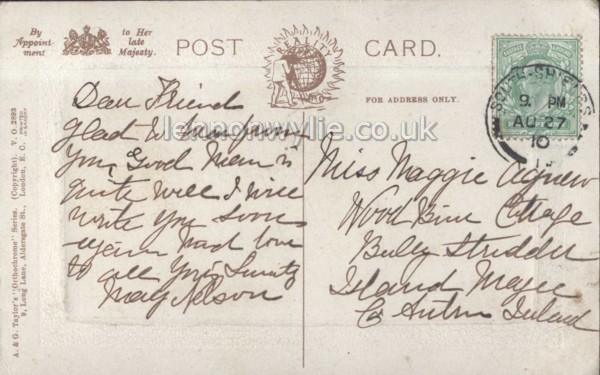 By
Appoint-
ment
to Her
late
Majesty.
POST CARD.
REALITY
FOR ADDRESS ONLY.
SOUTH-SHIELDS
9. PM
AU 27
10
lennonwylie.co.uk
lennonwylie.co.uk
A. & G. Taylor's "Orthochrome" Series. (Copyright). V. O. 2893
9, Long Lane, Aldersgate St., London, E. C.
Dear Friend
Glad to hear from
you Good is
quite well I will
write you soon
again
to all yours
May Nelson
Miss Maggie Agnew
Wood Bine Cottage
Island Magee
Co Antrim Ireland